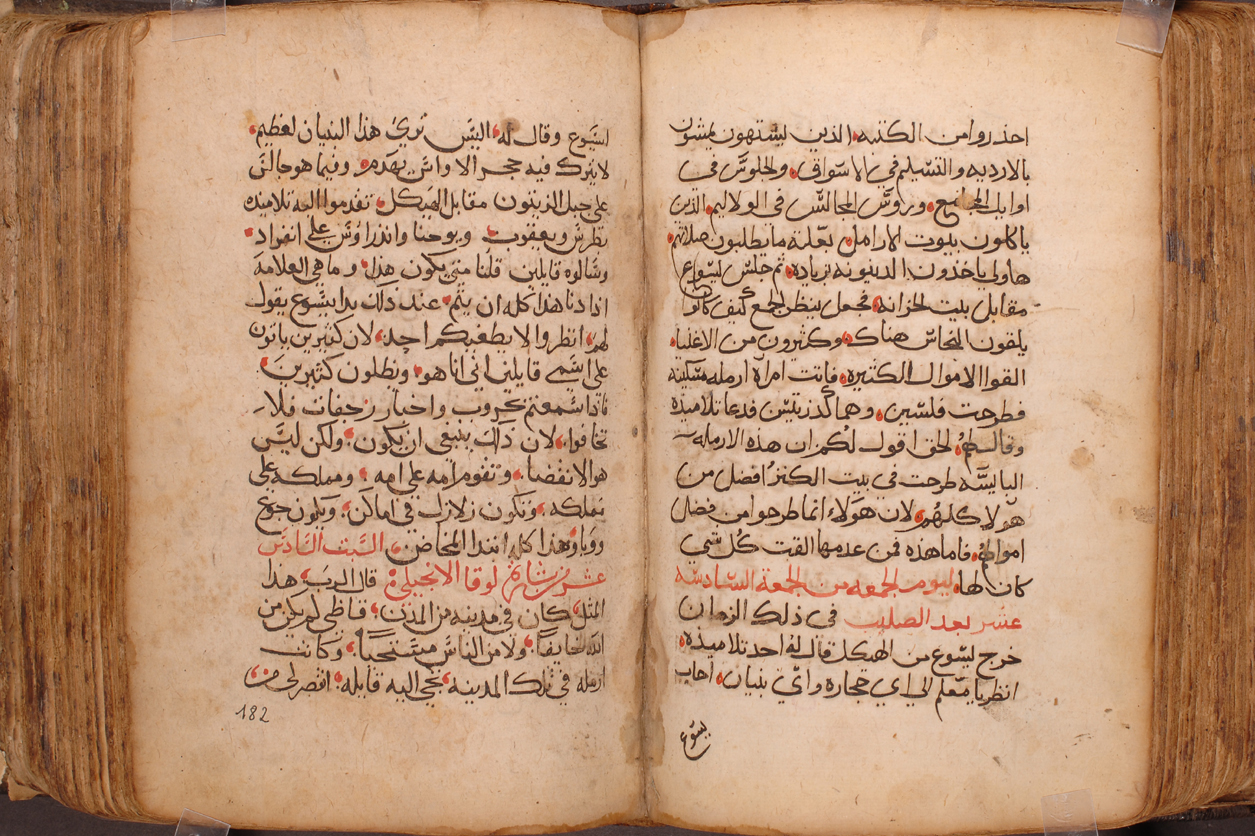 احذروا من الكتبه الذين يشتهون يمشون
بالارديه والتسليم في الاسواق والجلوس في
اوايل المجاميع وروس المجالس في الولايم الذين
ياكلون بيوت الارامل بعلة ما يطلبون صلاتهم
هاولى ياخذون الدينونه بزياده ثم جلس يسوع
مقابل بيت الخزانه فجعل ينظر الجمع كيف كانوا
يلقون النحاس هناك وكثيرون من الاغنيا
القوا الاموال الكثيره فاتت امراة ارمله مسكينه
فطرحت فلسين وهما كدرنتين فدعا تلاميذه
وقال لهم الحق اقول لكم ان هذه الارمله
البايسه طرحت في بيت الكنز افضل من
هولا كلهم لان هولاء انما طرحوا من فضل
اموالهم فاما هذه فمن عدمها القت كل شي
كان لها ليوم الجمعه من الجمعة السادسه
عشر بعد الصليب في ذلك الزمان
خرج يسوع من الهيكل قال له احد تلاميذه
انظر يا معلم الى اي حجاره واي بنيان اجاب
يسوع
يسوع وقال له اليس ترى هذا البنيان لعظيم
لا يترك فيه حجر الا واس يهدم وفيما هو جالس
على جبل الزيتون مقابل الهيكل تقدموا اليه تلاميذه
بطرس ويعقوب ويوحنا واندراوس على انفراد
وسالوه قايلين قلنا متى يكون هذا وما هي العلامة
اذا دنا هذا كله ان يتم عند ذلك بدا يسوع يقول
لهم انظروا لا يطغيكم احد لان كثيرين ياتون
على اسمي قايلين اني انا هو ويظلون كثيرين
فاذا سمعتم بحروب واخبار زجفات فلا
تخافوا لان ذلك ينبغي ان يكون ولكن ليس
هو الانقضا وتقوم امه على امه ومملكه على
مملكه وتكون زلازل في اماكن ويكون جوع
ووبا وهذا كله ابتدا المخاض السبت السادس
عشر من بشارة لوقا الانجيلي قال الرب هذا
المثل كان في مدينه من المدن قاظي لم يكن من
الله خايفا ولا من الناس مستحيا وكانت
ارمله في تلك المدينه تجي اليه قايله انتصر لي من
182